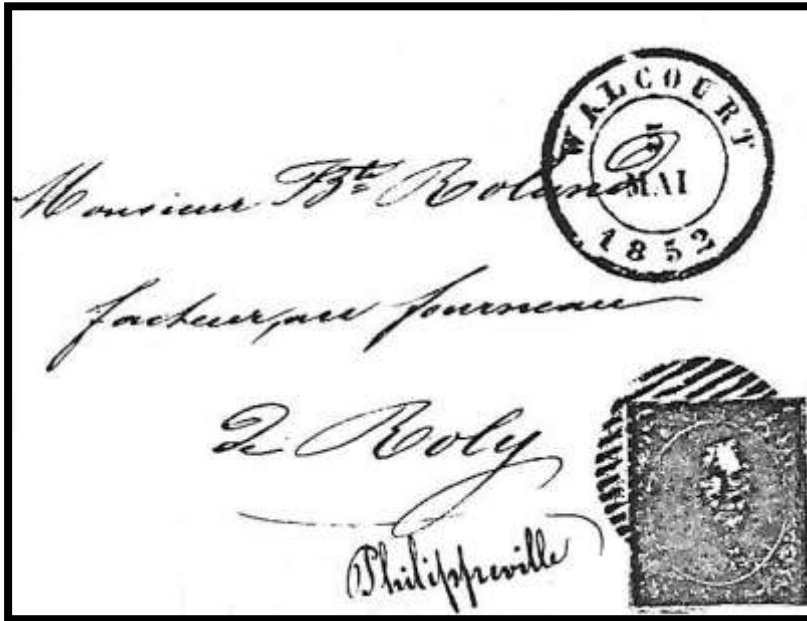 WALCOURT
5
MAI
1852
Monsieur Bte Roland
facteur au fourneau
de Roly
Philippeville